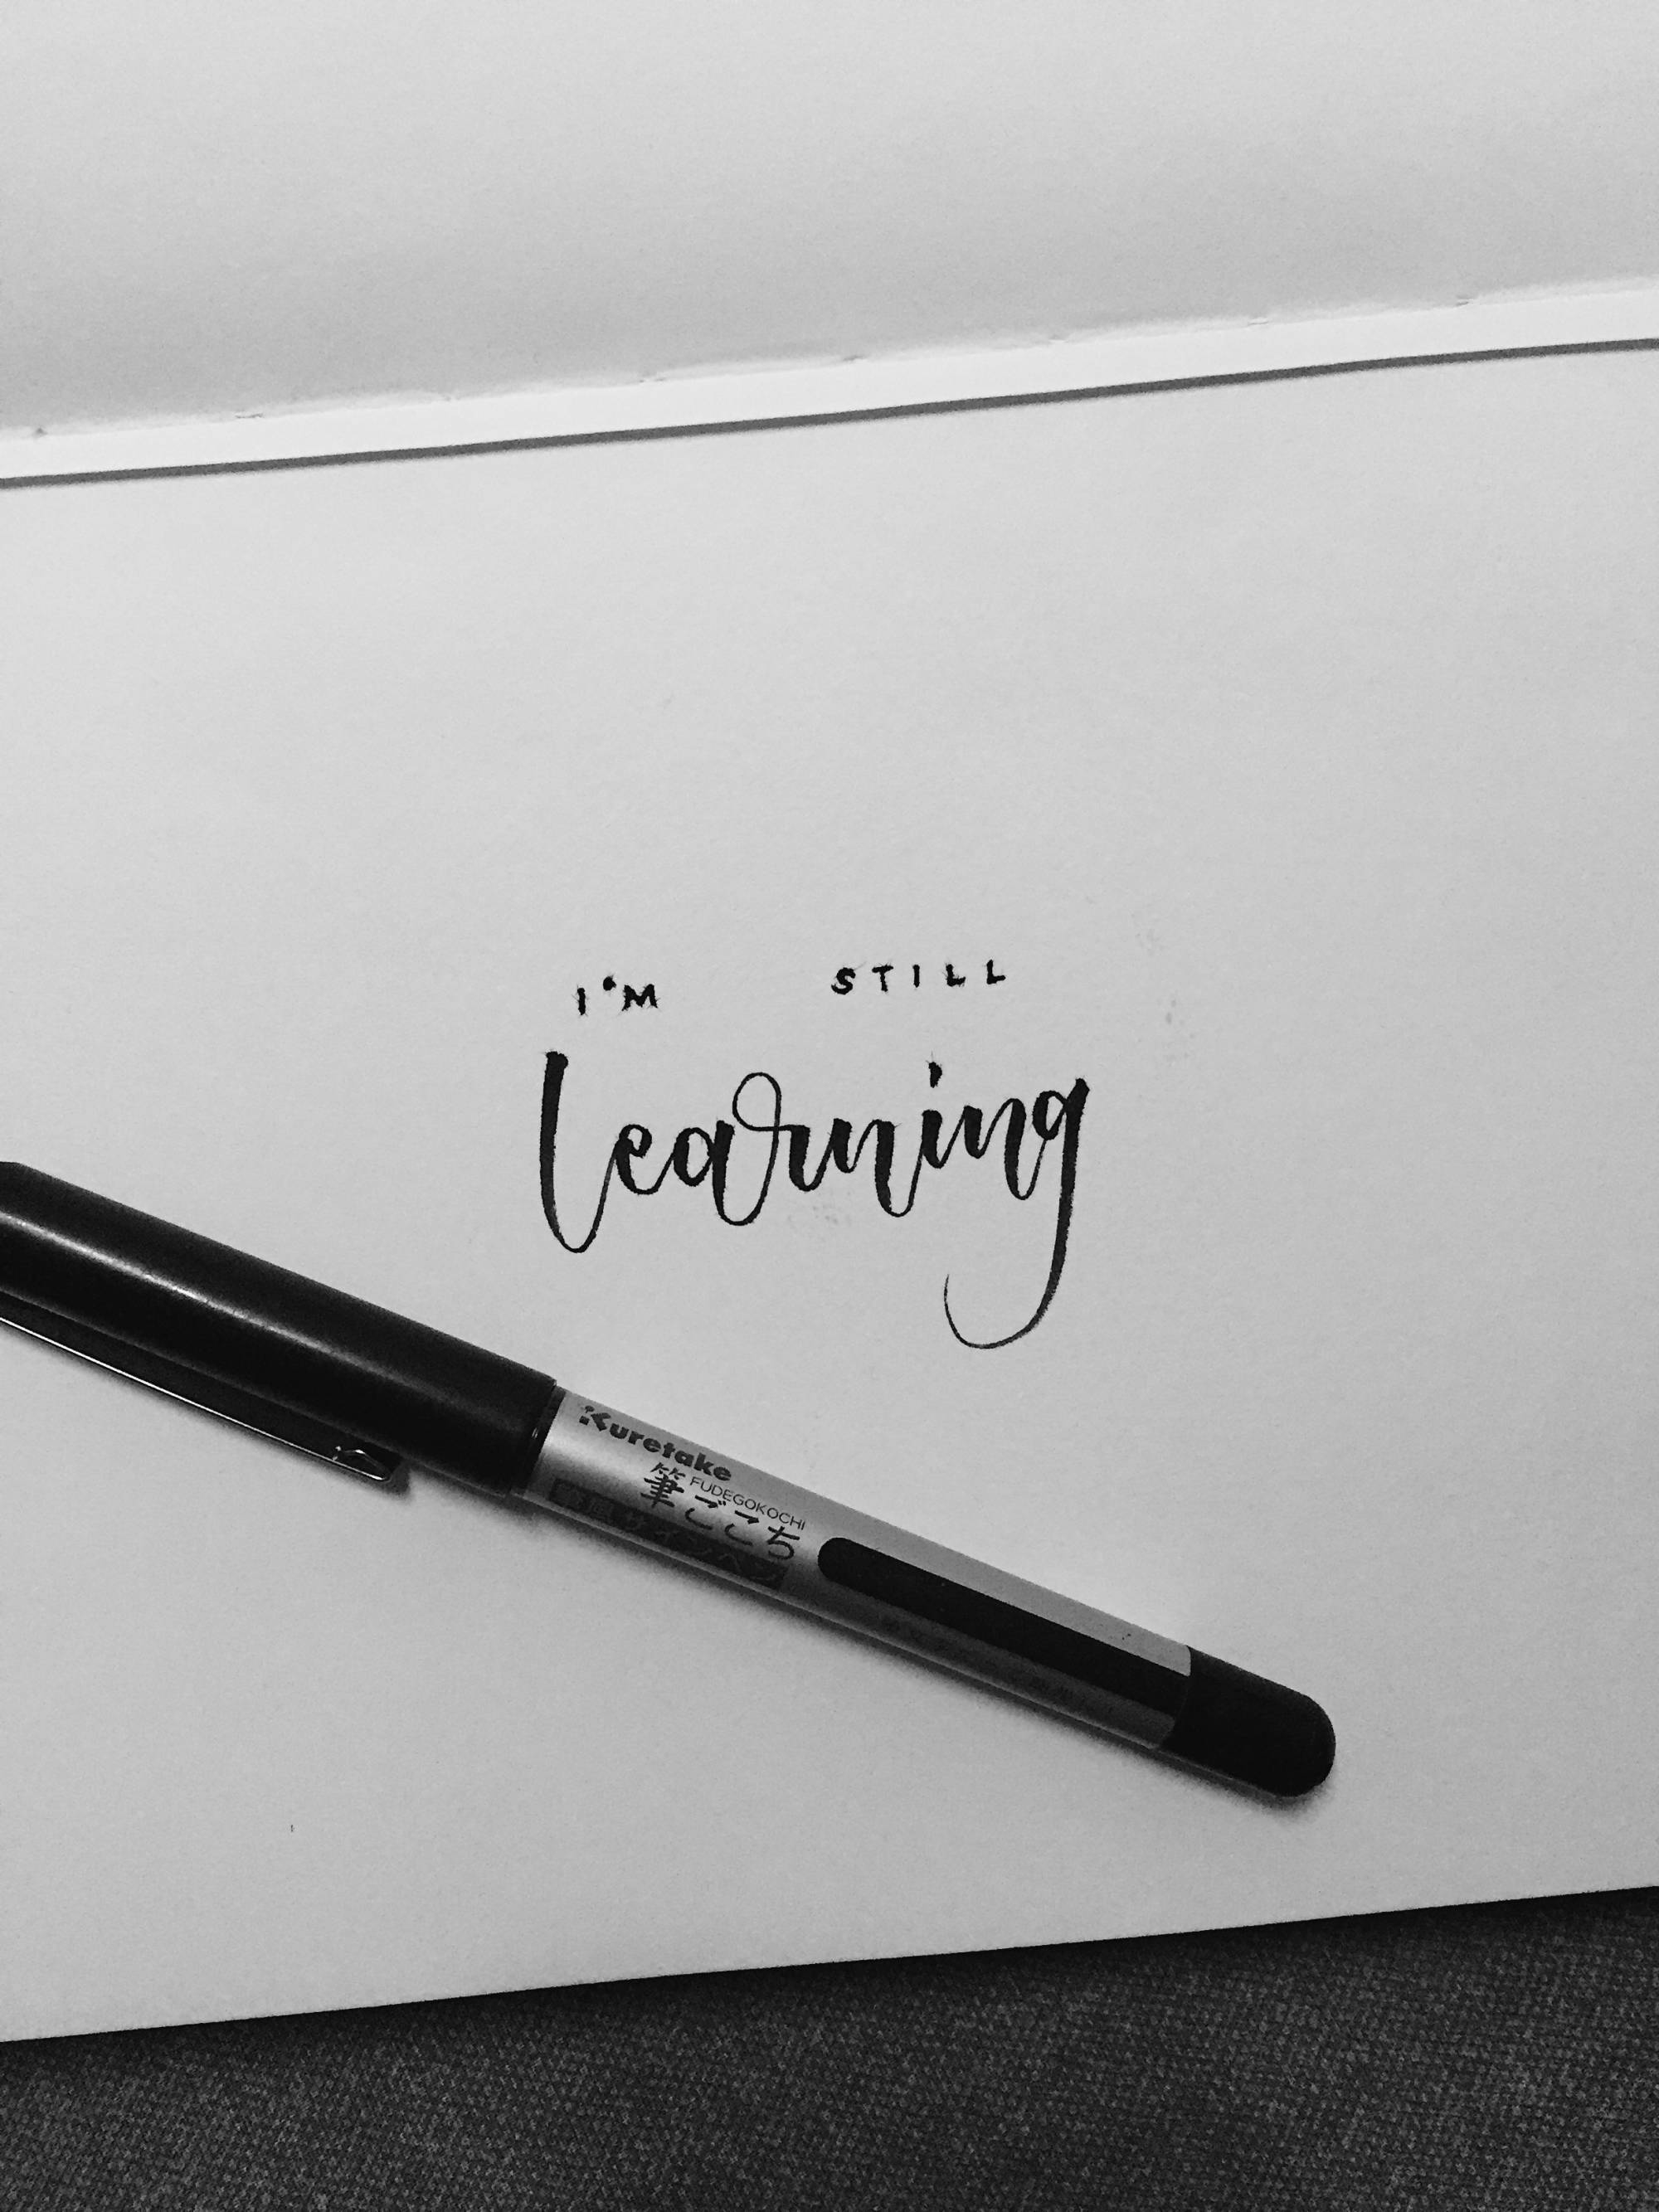 I'M STILL
learning
Kuretake
FUDEGOKOCHI
筆ごこち